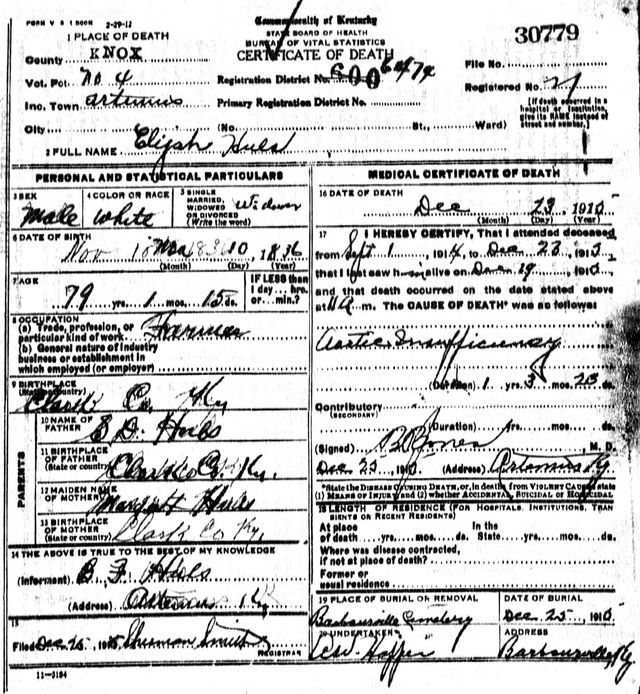 FORM V S 1 500M 2-29-12
Commonwealth of Kentucky
STATE BOARD OF HEALTH
BUREAU OF VITAL STATISTICS
CERTIFICATE OF DEATH
30779
1 PLACE OF DEATH
County KNOX
Vot. Pct. No 4
Inc. Town Artemus
City
Registration District No. 600
Primary Registration District No.
File No.
Registered No. 21
(No. St., Ward)
[If death occurred in a hospital or institution, give its NAME instead of street and number.]
2 FULL NAME Elijah
PERSONAL AND STATISTICAL PARTICULARS
3 SEX Male
4 COLOR OR RACE White
5 SINGLE, MARRIED, WIDOWED OR DIVORCED (Write the word) Widower
6 DATE OF BIRTH Nov 10, 1836
(Month) (Day) (Year)
7 AGE 79 yrs. 1 mos. 15 ds.
IF LESS than 1 day... hrs. or... min.?
8 OCCUPATION
(a) Trade, profession, or particular kind of work Farmer
(b) General nature of industry business or establishment in which employed (or employer)
9 BIRTHPLACE (State or country) Clark Co. Ky
PARENTS
10 NAME OF FATHER
11 BIRTHPLACE OF FATHER (State or country) Clark Co. Ky.
12 MAIDEN NAME OF MOTHER Margrett
13 BIRTHPLACE OF MOTHER (State or country) Clark Co Ky,
14 THE ABOVE IS TRUE TO THE BEST OF MY KNOWLEDGE
(Informant) B. F.
(Address) Artemus Ky
15
Filed Dec 25 1915 Sherman Smith
REGISTRAR
11-3184
MEDICAL CERTIFICATE OF DEATH
16 DATE OF DEATH Dec 23, 1915
(Month) (Day) (Year)
17 I HEREBY CERTIFY, That I attended deceased
from Sept 1, 1914, to Dec 23, 1915,
that I last saw him alive on Dec 19, 1915,
and that death occurred on the date stated above
at m. The CAUSE OF DEATH* was as follows:
Aortic Insufficiency
(Duration) 1 yrs. 3 mos. 23 ds.
Contributory
(SECONDARY)
(Duration) yrs. mos. ds.
(Signed) B. Jones, M. D.
Dec 23, 1915 (Address) Artemus Ky.
*State the DISEASE CAUSING DEATH, or, in deaths from VIOLENT CAUSES state (1) MEANS OF INJURY and (2) whether ACCIDENTAL, SUICIDAL OR HOMICIDAL
18 LENGTH OF RESIDENCE (FOR HOSPITALS, INSTITUTIONS, TRANSIENTS OR RECENT RESIDENTS)
At place of death yrs. mos. ds. In the State yrs. mos. ds.
Where was disease contracted, if not at place of death?
Former or usual residence
19 PLACE OF BURIAL OR REMOVAL Barbourville Cemetery
DATE OF BURIAL Dec 25 1915
20 UNDERTAKER
ADDRESS Barbourville, Ky